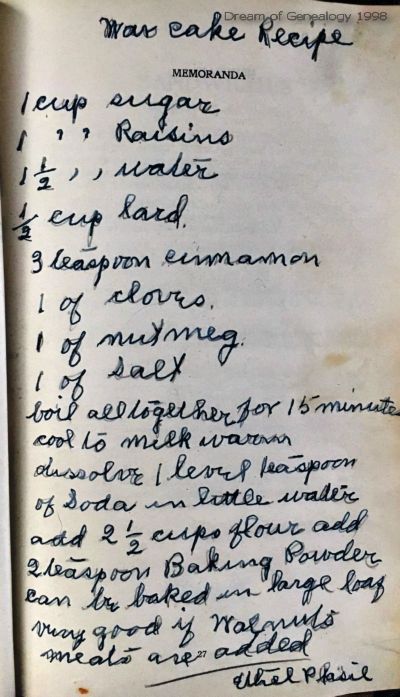 Dream of Genealogy 1998
War cake Recipe
MEMORANDA
1 cup sugar
1 " " Raisins
1 1/2 " " water
1/2 cup lard.
3 teaspoon cinnamon
1 of cloves.
1 of nutmeg.
1 of salt
boil all together for 15 minutes
cool to milk warm
dissolve 1 level teaspoon
of Soda in little water
add 2 1/2 cups flour add
2 teaspoon Baking Powder
can be baked in large loaf
very good if Walnuts
meats are added
27
Ethel